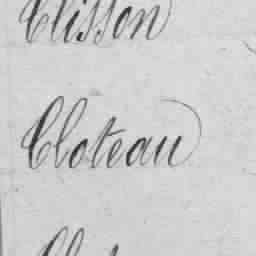 Clisson
Cloteau